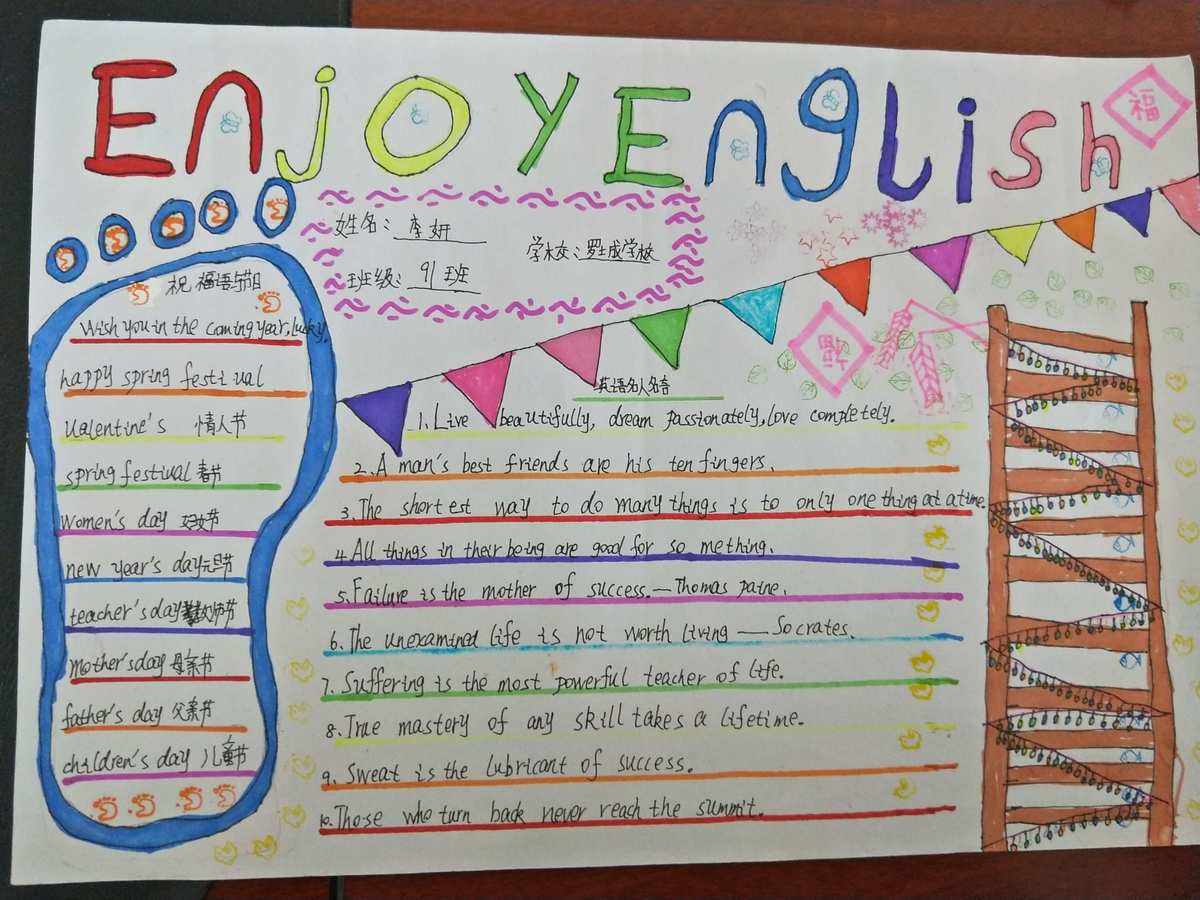 Enjoy English
福
姓名：李妍
学校：罗城学校
班级：91班
祝福语与节日
Wish you in the coming year.lucky.
happy spring festival
Valentine's 情人节
spring festival 春节
women's day 妇女节
new year's day元旦节
teacher's day教师节
mother'sday 母亲节
father's day 父亲节
children's day 儿童节
福
英语名人名言
1.Live beautifully, dream passionately,love completely.
2.A man's best friends are his ten fingers.
3.The shortest way to do many things is to only one thing at a time.
4.All things in their being are good for so mething.
5.Failure is the mother of success.—Thomas paine.
6.The unexamined life is not worth living —Socrates.
7.Suffering is the most powerful teacher of life.
8.True mastery of any skill takes a lifetime.
9.Sweat is the lubricant of success.
10.Those who turn back never reach the summit.